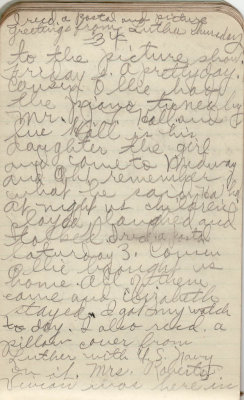 I recd. a postal and picture
greetings from Luther Thursday
34
to the picture show.
Friday 2. A pretty day.
Cousin Ollie had
the piano tuned by
Mr. Hall and
Sue Hall is his
daughter the girl
and come to Midway
and
what he said
at night
played laughed and
to bed. I recd. a postal
Saturday 3. Cousin
Ollie brought us
home. All of them
came and Elizabeth
stayed. I got my watch
to day. I also recd. a
pillow cover from
Luther with U.S. Navy
on it. Mrs. Roberts
Vivian was here in